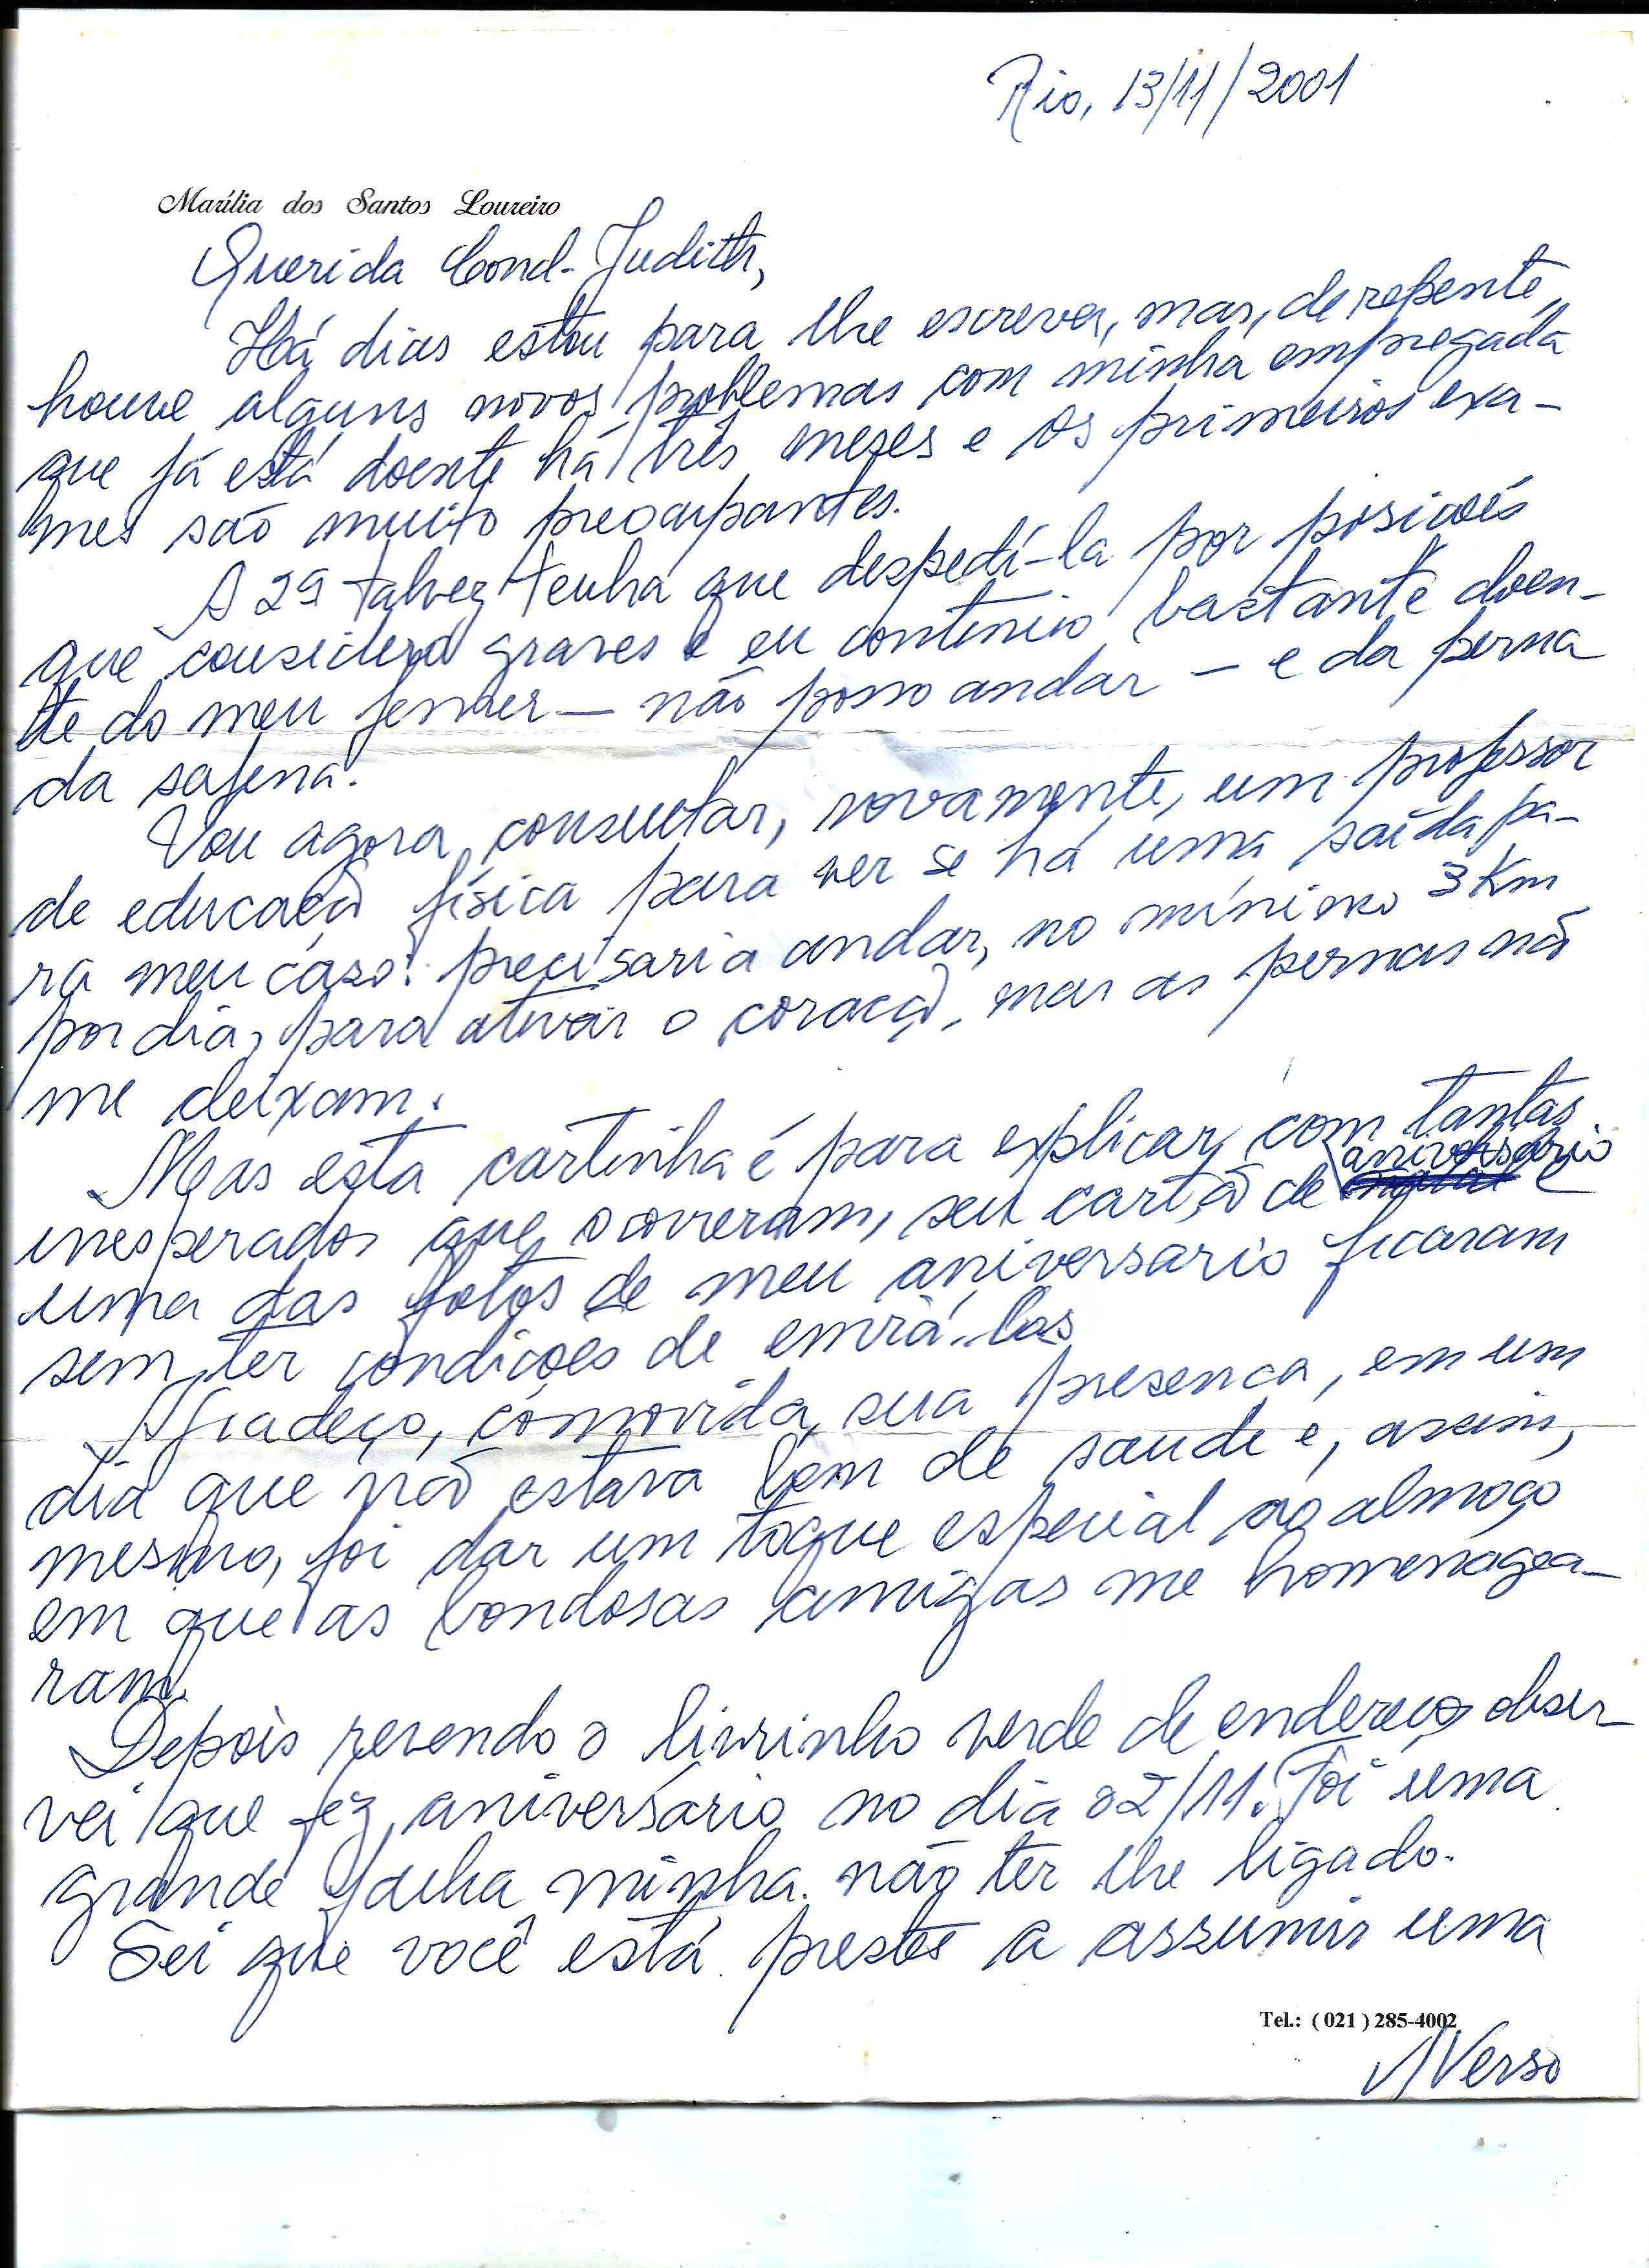 Rio, 13/11/2001
Marília dos Santos Loureiro
Querida Cond. Judith,
Há dias estou para lhe escrever, mas, de repente,
houve alguns novos problemas com minha empregada
que já está doente há três meses e os primeiros exa-
mes são muito preocupantes.
A 2ª talvez tenha que despedí-la por posições
que considero graves e eu continuo bastante doen-
te do meu femur — não posso andar — e da perna
da safena.
Vou agora consultar, novamente, um professor
de educação física para ver se há uma saída pa-
ra meu caso: precisaria andar, no mínimo 3 Km
por dia, para ativar o coração, mas as pernas não
me deixam.
Mas esta cartinha é para explicar, com tantas
aniversário
inesperados que ocorreram, seu cartão de e
uma das fotos de meu aniversario ficaram
sem ter condições de enviá-las
Agradeço, comovida, sua presença, em um
dia que não estava bem de saude e, assim,
mesmo, foi dar um toque especial ao almoço
em que as bondosas amigas me homenagea-
ram.
Depois revendo o livrinho verde de endereços obser
vei que fez aniversário no dia 02/11. Foi uma
grande falha minha não ter lhe ligado.
Sei que você está prestes a assumir uma
Tel.: (021) 285-4002
Verso